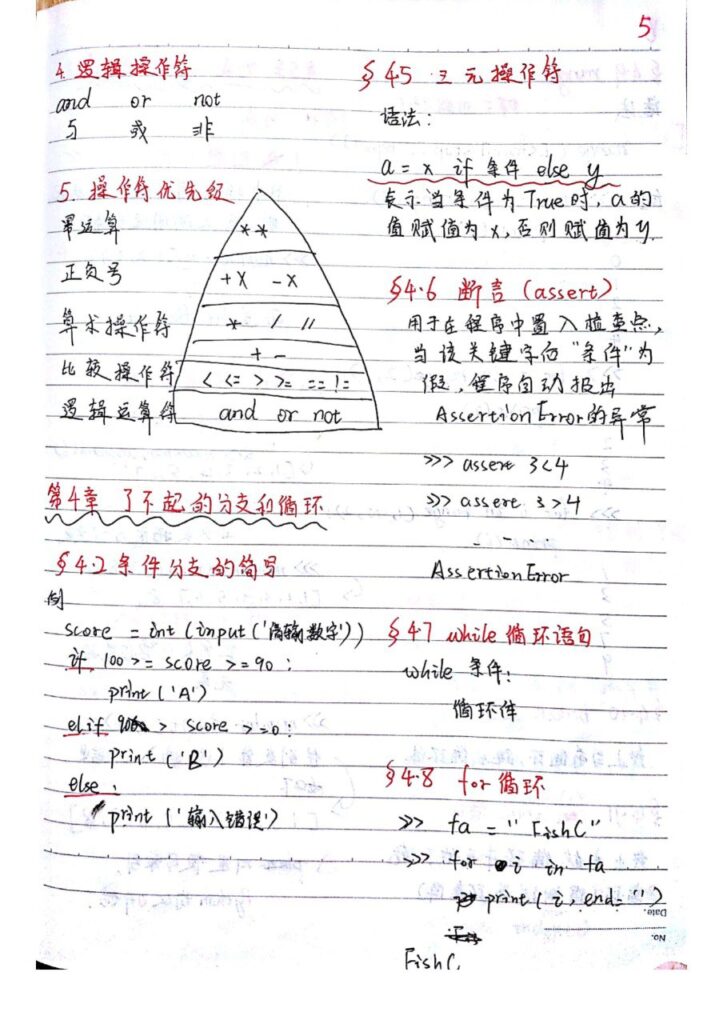 5
4. 逻辑操作符
and or not
与 或 非
5. 操作符优先级
幂运算 **
正负号 +X -X
算术操作符 * / //
+ -
比较操作符 < <= > >= == !=
逻辑运算符 and or not
第4章 了不起的分支和循环
§4.2 条件分支的简写
例
score = int (input ('请输数字'))
if 100 >= score >= 90 :
print ('A')
elif 90 > score >= 0 :
print ('B')
else :
print ('输入错误')
§45 三元操作符
语法：
a = x if 条件 else y
表示当条件为True时，a的
值赋值为x，否则赋值为y.
§4.6 断言 (assert)
用于在程序中置入检查点，
当该关键字后"条件"为
假，程序自动报出
AssertionError的异常
>>> assert 3<4
>>> assert 3>4
- -
AssertionError
§4.7 while 循环语句
while 条件：
循环体
§4.8 for 循环
>> fa = " FishC"
>>> for i in fa
print ( i , end= ' ')
FishC
Date.
No.